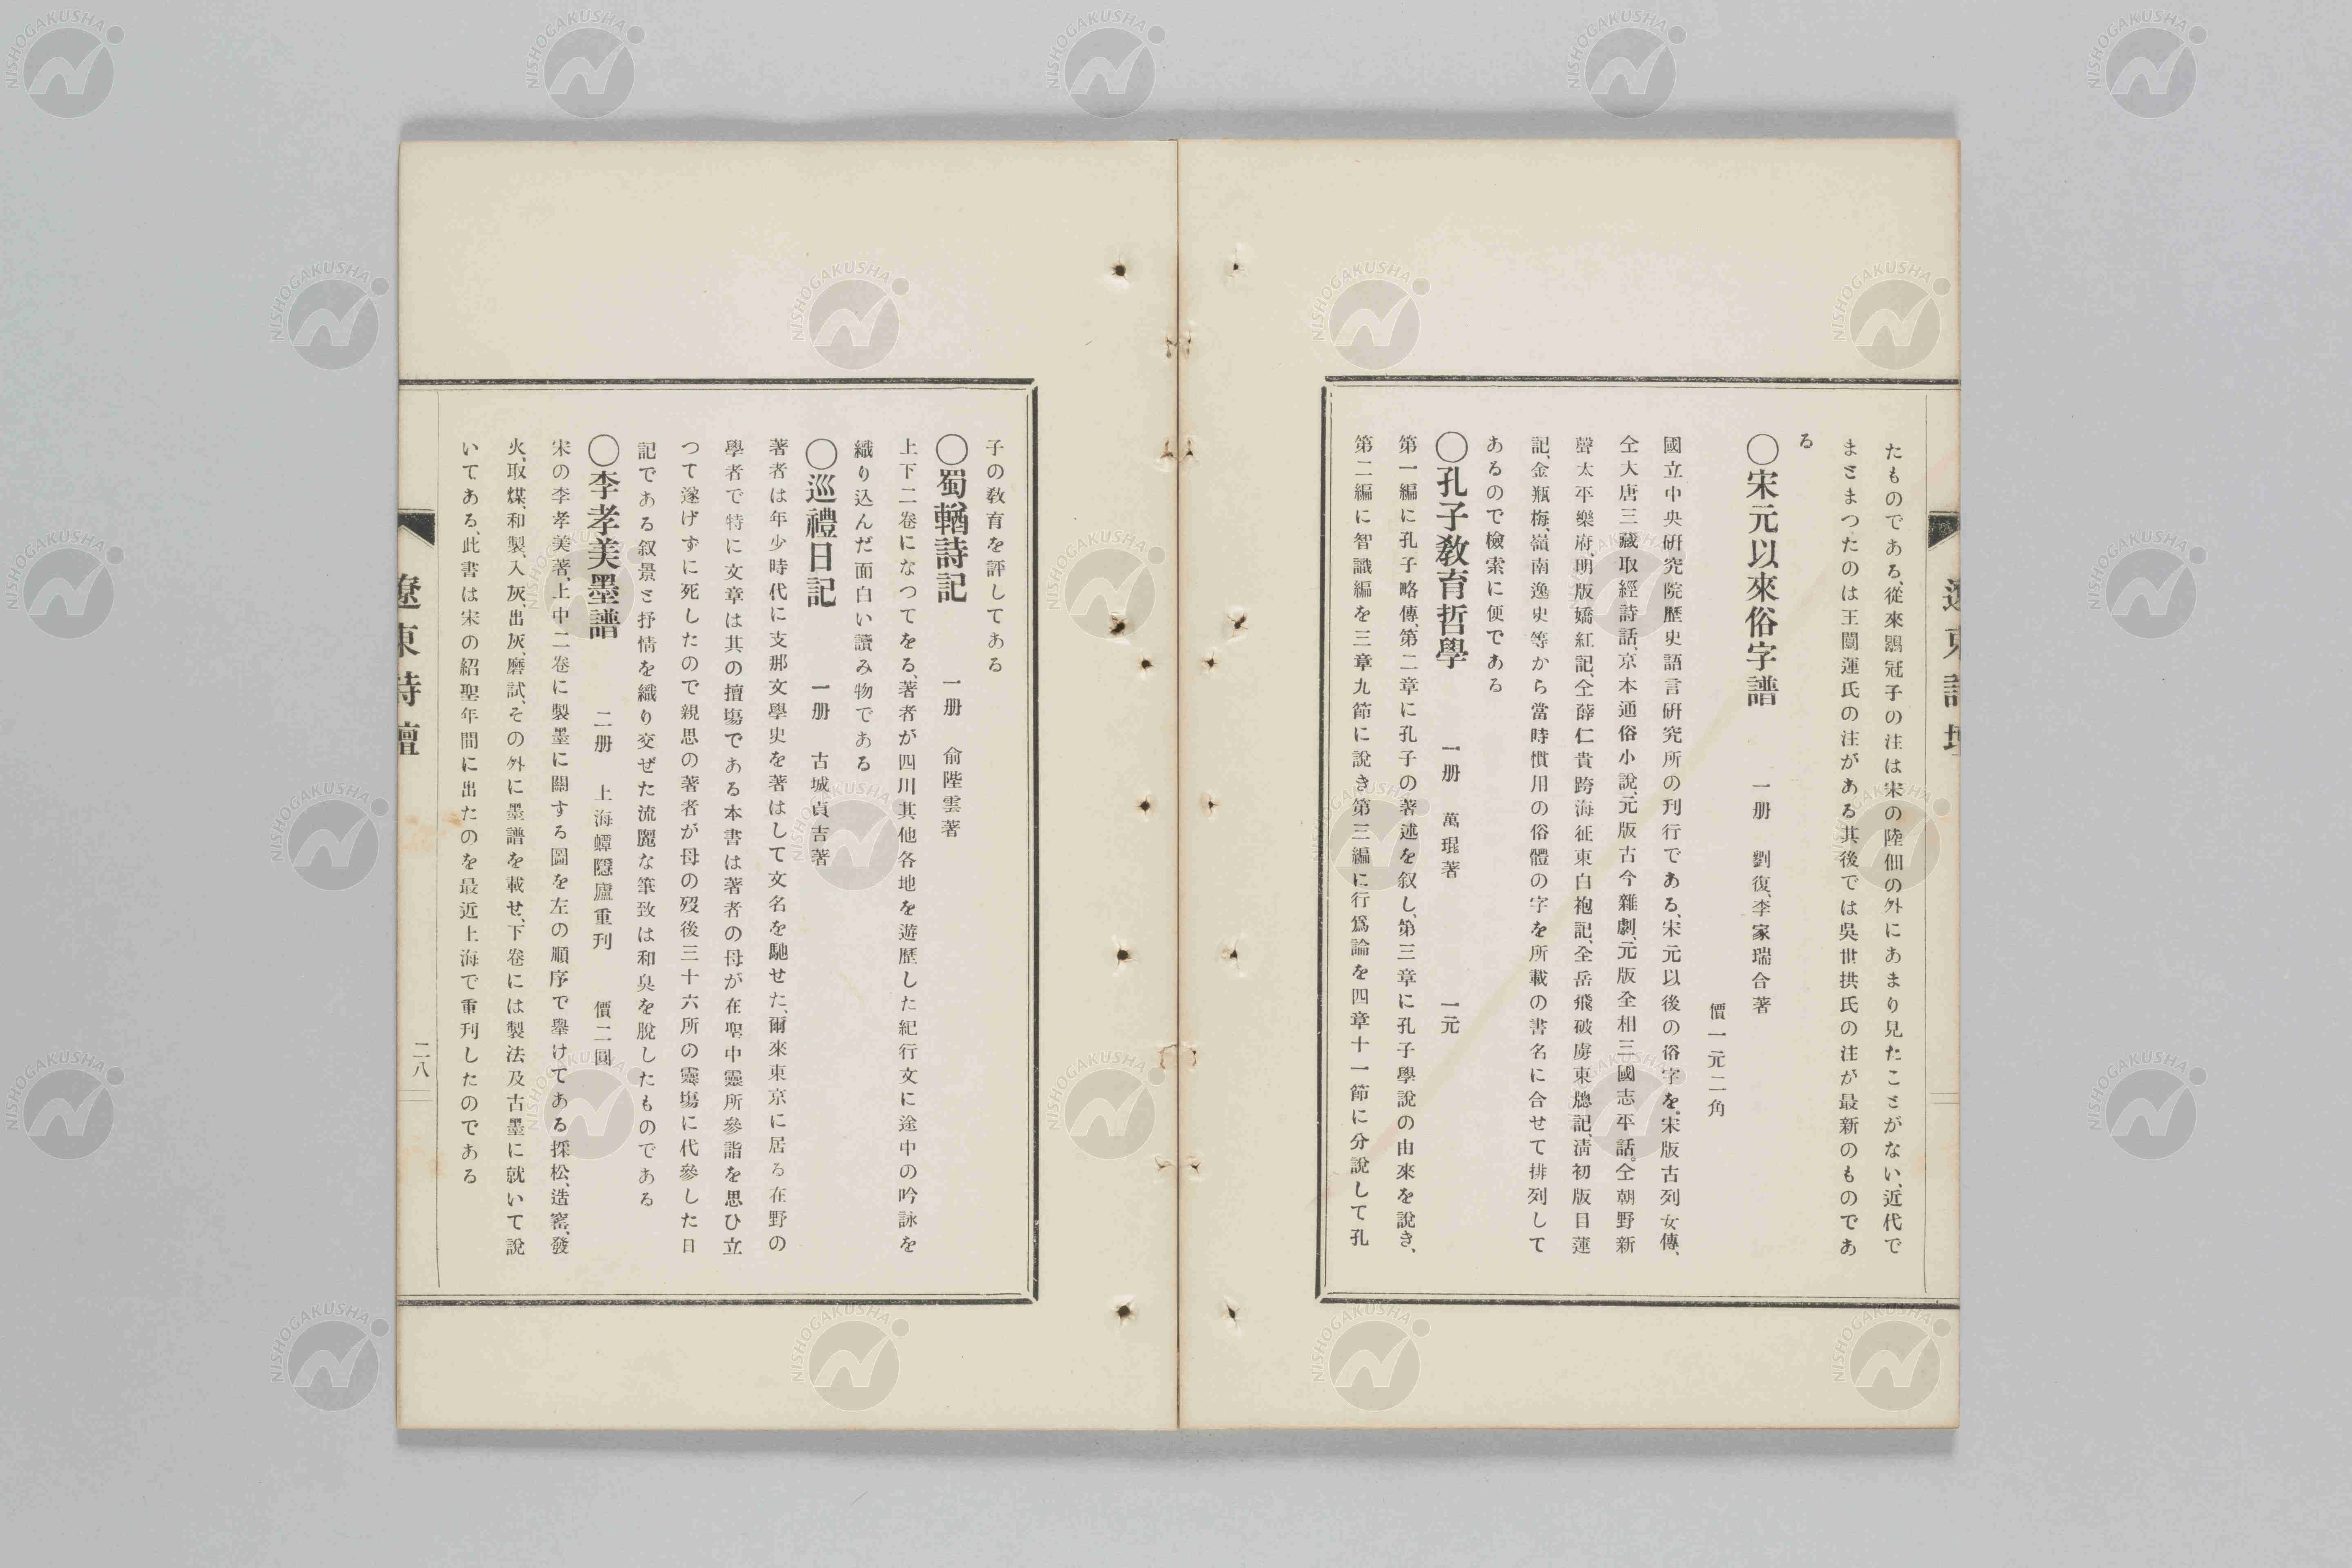 たものである、從來鶡冠子の注は宋の陸佃の外にあまり見たことがない、近代で
まとまつたのは王闓運氏の注がある其後では吳世拱氏の注が最新のものであ
る
〇宋元以來俗字譜 一册 劉復、李家瑞合著
價一元二角
國立中央硏究院歷史語言硏究所の刊行である、宋元以後の俗字を。宋版古列女傳、
仝大唐三藏取經詩話、京本通俗小說、元版古今雜劇、元版全相三國志平話。仝朝野新
聲太平樂府、明版嬌紅記、仝薛仁貴跨海征東白袍記、全岳飛破虜東牕記、淸初版目蓮
記、金瓶梅、嶺南逸史等から當時慣用の俗體の字を所載の書名に合せて排列して
あるので檢索に便である
〇孔子敎育哲學 一册 萬琨著 一元
第一編に孔子略傳、第二章に孔子の著述を叙し、第三章に孔子學說の由來を說き、
第二編に智識編を三章九節に說き第三編に行爲論を四章十一節に分說して孔
子の敎育を評してある
〇蜀輶詩記 一册 俞陛雲著
上下二卷になつてをる、著者が四川其他各地を遊歷した紀行文に途中の吟詠を
織り込んだ面白い讀み物である
〇巡禮日記 一册 古城貞吉著
著者は年少時代に支那文學史を著はして文名を馳せた、爾來東京に居る在野の
學者で特に文章は其の擅塲である本書は著者の母が在聖中靈所參詣を思ひ立
つて遂げずに死したので親思の著者が母の歿後三十六所の靈塲に代參した日
記である叙景と抒情を織り交ぜた流麗な筆致は和臭を脫したものである
〇李孝美墨譜 二册 上海蟫隱廬重刊 價二圓
宋の李孝美著、上中二卷に製墨に關する圖を左の順序で擧けてある採松、造窰、發
火、取煤、和製、入灰、出灰、磨試、その外に墨譜を載せ、下卷には製法及古墨に就いて說
いてある、此書は宋の紹聖年間に出たのを最近上海で重刊したのである
遼東詩壇
二八
NISHOGAKUSHA